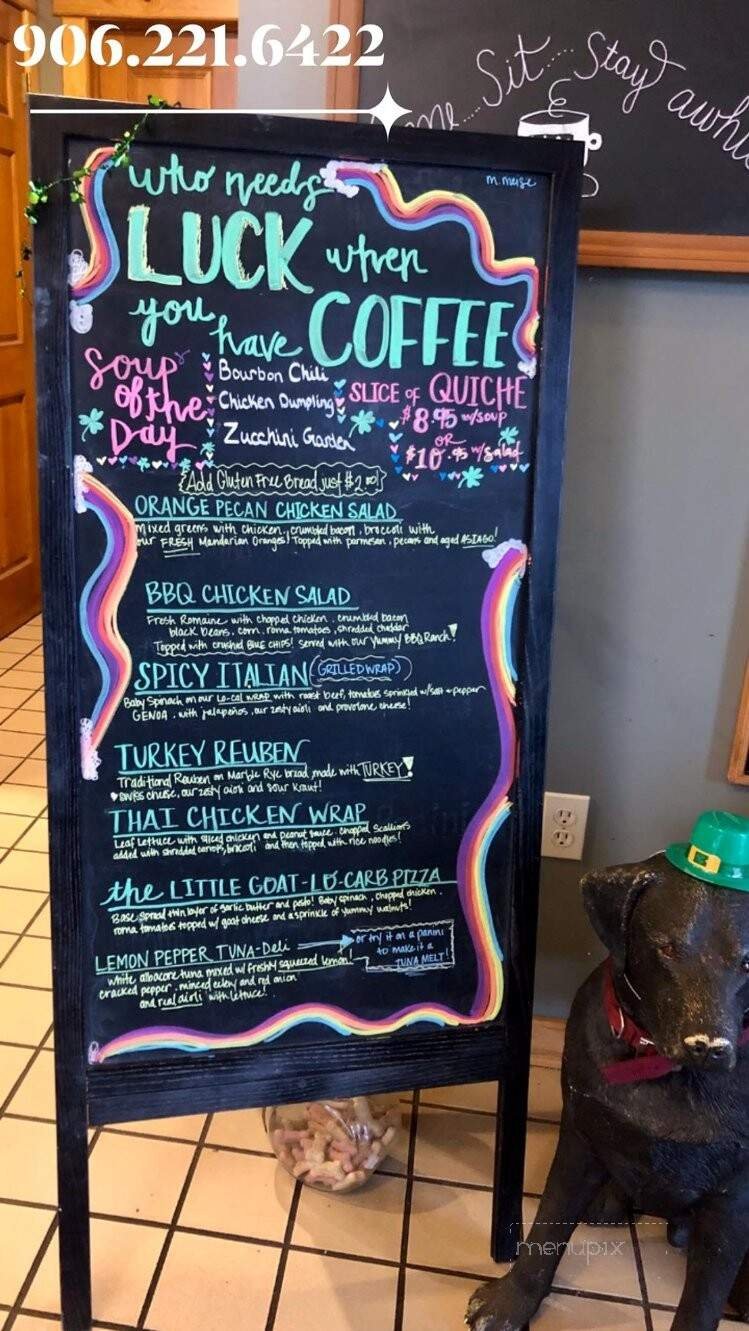 906.221.6422
Sit... Stay awhi
m.meise
who needs
LUCK when
you have COFFEE
Soup of the Day
Bourbon Chili
Chicken Dumpling
Zucchini Garden
SLICE OF QUICHE
$8.95 w/soup
OR
$10.95 w/Salad
Add Gluten Free Bread just $2.00!
ORANGE PECAN CHICKEN SALAD
Mixed greens with chicken, crumbled bacon, broccoli with
our FRESH Mandarian Oranges! Topped with parmesan, pecans and aged ASIAGO!
BBQ CHICKEN SALAD
Fresh Romaine with chopped chicken, crumbled bacon
black beans, corn, roma tomatoes, shredded cheddar
Topped with crushed BLUE CHIPS! Served with our Yummy BBQ Ranch!
SPICY ITALIAN (GRILLED WRAP)
Baby Spinach on our LO-CAL WRAP with roast beef, tomatoes sprinkled w/salt + pepper
GENOA, with jalapeños, our zesty aioli and provolone cheese!
TURKEY REUBEN
Traditional Reuben on Marble Rye bread made with TURKEY!
swiss cheese, our zesty aioli and sour kraut!
THAI CHICKEN WRAP
Leaf Lettuce with sliced chicken and peanut sauce. Chopped Scallions
added with shredded carrots, broccoli and then topped with rice noodles!
the LITTLE GOAT-LO-CARB PIZZA
Base spread thin layer of garlic butter and pesto! Baby spinach, chopped chicken,
roma tomatoes topped w/ goat cheese and a sprinkle of yummy walnuts!
LEMON PEPPER TUNA-Deli
white albacore tuna mixed w/ freshly squeezed lemon!
cracked pepper, minced celery and red onion
and real aioli with lettuce!
or try it on a panini
to make it a
TUNA MELT!
menupix